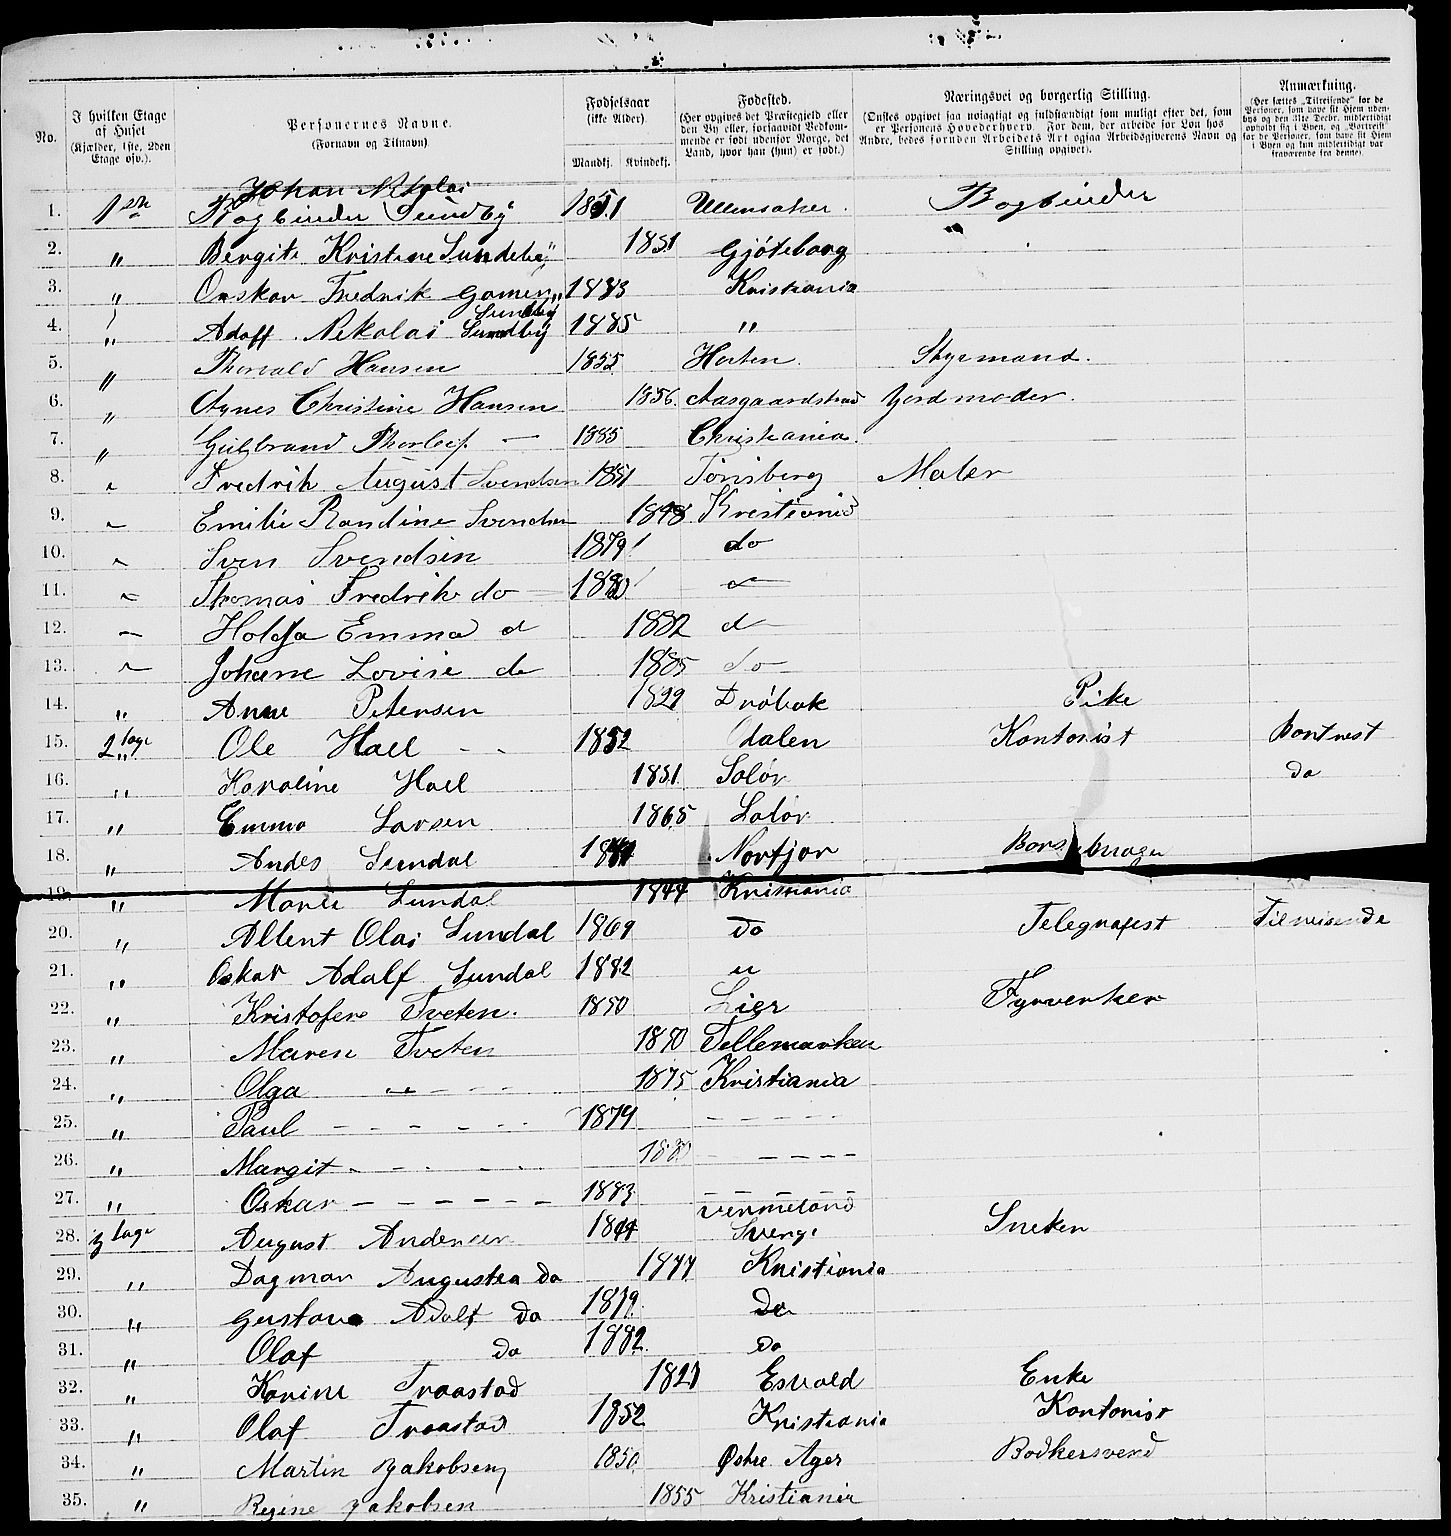 No.
I hvilken Etage af Huset (Kjælder, 1ste, 2den Etage osv.).
Personernes Navne. (Fornavn og Tilnavn).
Fødselsaar (ikke Alder). Mandkj. Kvindekj.
Fødested. (Her opgives det Præstegjeld eller den By eller, forsaavidt Vedkommende er født udenfor Norge, det Land, hvor han (hun) er født.)
Næringsvei og borgerlig Stilling. (Ønskes opgivet saa nøiagtigt og fuldstændigt som muligt efter det, som er Personens Hovederhverv. For dem, der arbeide for Løn hos Andre, bedes foruden Arbeidets Art ogsaa Arbeidsgiverens Navn og Stilling opgivet).
Anmærkning. (Her sættes „Tilreisende" for de Personer, som have sit Hjem udenbys og den 31te Decbr. midlertidigt opholdt sig i Byen, og „Bortreist" for de Personer, som have sit Hjem i Byen og kun midlertidigt var fraværende fra denne).
Johan Nikolai
1. 1 ste Bogbinder Sundby 1851 Ullensaker. Bogbinder
2. " Bergite Kristine Sundeby 1851 Gjøteborg
3. " Oaskar Fredrik Gomen " 1883 Kristiania
Sundby
4. " Adoff Nikolai Sundby 1885 "
5. " Thorvald Hansen 1855 Horten. Styrmand.
6. " Agnes Christine Hansen 1856. Aasgaardstrand Jordmoder.
7. " Gulbrand Thorleif — 1885 Christiania.
8. " Fredrik August Svendsen 1851 Tønsberg Maler
9. " Emilie Randine Svendsen 1848 Kristiania
10. " Sven Svendsen 1879 do
11. " Thomas Fredrik do 1880
12. " Emma d 1882 d
13. " Johane Lovise do 1885 do
14. " Anne Petersen 1829 Drøbak Pike
15. 2 tage Ole Hoel 1852 Odalen Kontorist Bortrest
16. " Karoline Hoel 1851 Solør do
17. " Emma Larsen 1865 Solør
18. " Andes Lundal Norfjor
19. " Marie Lundal 1844 Kristiania
20. " Albert Olai Lundal 1869 do Telegrafist Tilreisende
21. " Oskar Adolf Lundal 1882 "
22. " Kristofer Tveten. 1850 Lier Fyrverker
23. " Maren Tveten 1850 Tellemarken
24. " Olga " 1875 Kristiania
25. " Paul - - - 1879 - - - -
26. " Margit - - - 1880 - - - -
27. " Oskar - - - - 1883 - - - -
Vermeland
28. 3 tage August Andersen 1844 Sverge Sneker
29. " Dagmar Augusta do 1877 Kristiania
30. " Gustav Adolf do 1879 do
31. " Olaf do 1882 do
32. " Karine Traastad 1821 Esvold Enke
33. " Olaf Traastad 1852 Kristiania Kontorist
34. " Martin Jakobsen 1850 Østre Ager Bødkersvend
35. " Regine Jakobsen 1855 Kristiania